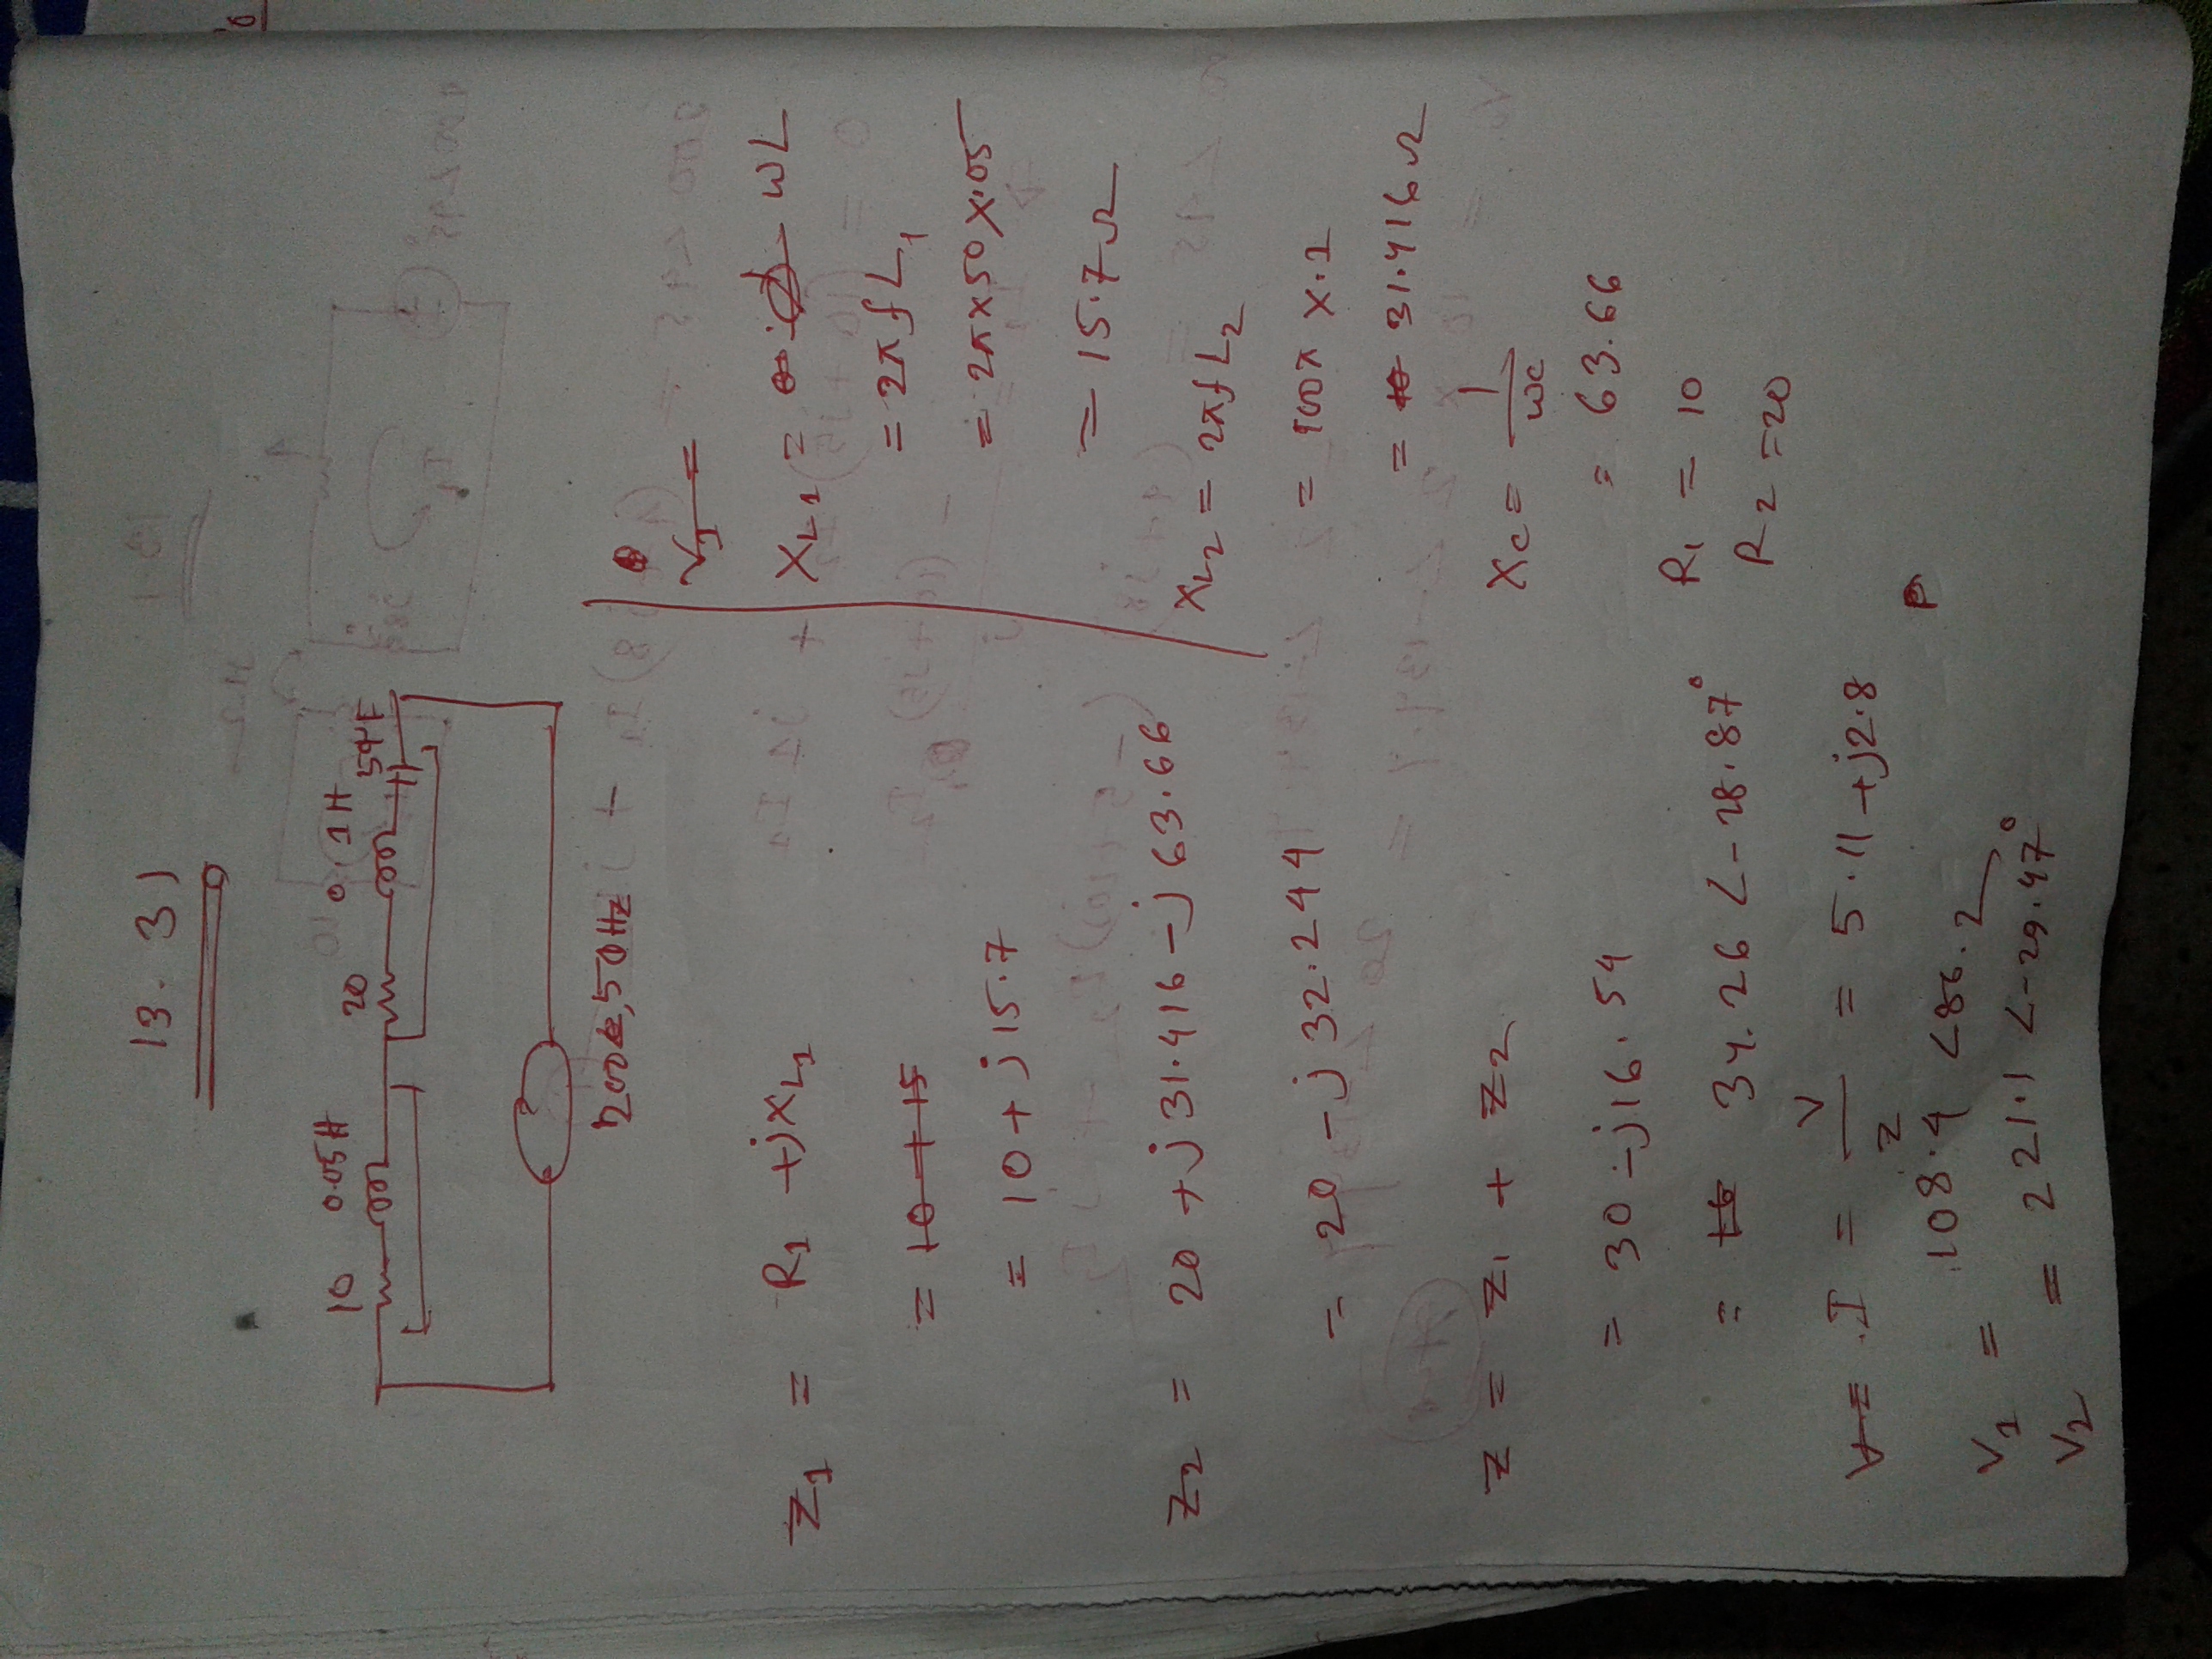 13. 31
10 0.05H 20 0.1H 50μF
200∠, 50Hz
Z1 = R1 + jXL1
= 10 + 15
= 10 + j 15.7
Z2 = 20 + j 31.416 - j 63.66
= 20 - j 32.244
Z = Z1 + Z2
= 30 - j16.54
= 16 34.26 ∠-28.87°
V = I = V/Z = 5.11 + j2.8
V1 = 108.4 ∠86.2
V2 = 221.1 ∠-29.47°
V1 =
XL1 = WL
= 2π f L1
= 2π×50×.05
= 15.7Ω
XL2 = 2πf L2
= 100π ×.1
= 10 31.416Ω
Xc = 1/wc
= 63.66
R1 = 10
R2 = 20
P